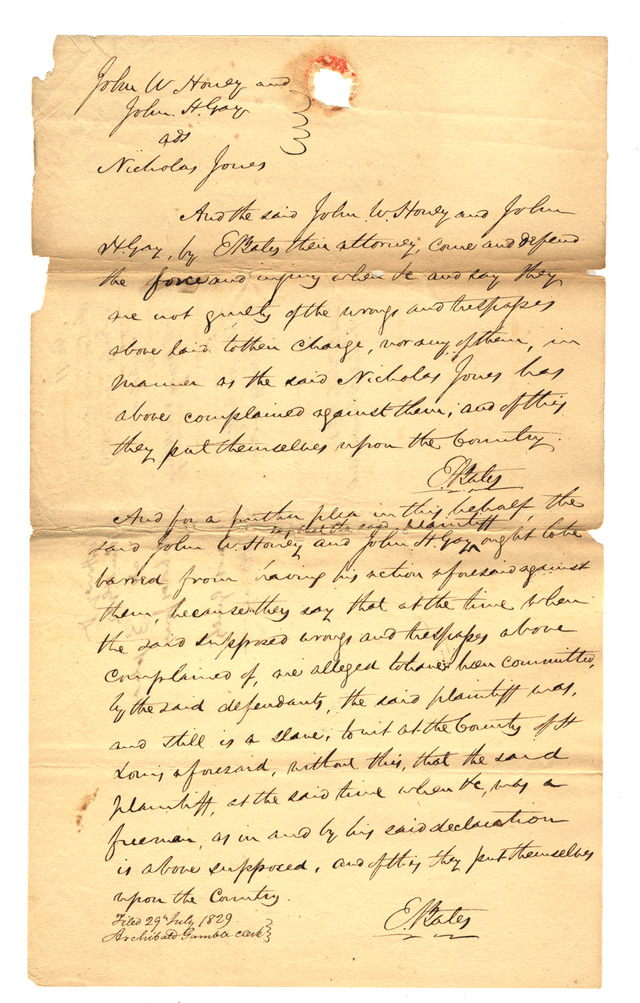 John W Honey and
John. H. Gay
ads
Nicholas Jones
And the said John W. Honey and John
H. Gay, by E Bates their attorney, come and defend
the force and injury when &c and say they
are not guilty of the wrongs and trespasses
above laid to their charge, nor any of them, in
manner as the said Nicholas Jones has
above complained against them; and of this
they put themselves upon the Country.
E. Bates
And for a further plea in this behalf, the
say, that the said plaintiff
said John W. Honey and John H. Gay ^ ought to be
barred from having his action aforesaid against
them, because they say that at the time when
the said supposed wrongs and trespasses above
complained of, are alleged to have been committed,
by the said defendants, the said plaintiff was,
and still is a slave, to wit at the County of St
Louis aforesaid, without this, that the said
plaintiff, at the said time when &c, was a
freeman, as in and by his said declaration
is above supposed, and of this they put themselves
upon the Country.
E. Bates
Filed 29th July 1829
Archibald Gamble clerk